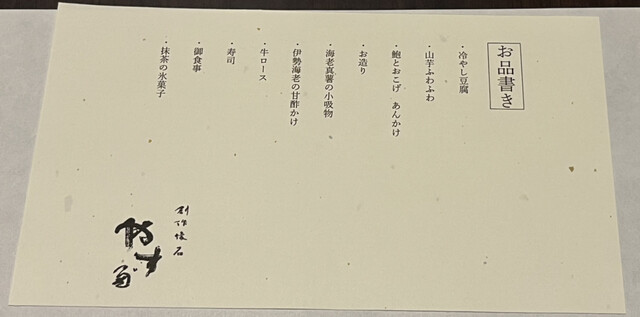 お品書き
・冷やし豆腐
・山芋ふわふわ
・鮑とおこげ あんかけ
・お造り
・海老真薯の小吸物
・伊勢海老の甘酢かけ
・牛ロース
・寿司
・御食事
・抹茶の氷菓子
創作懐石